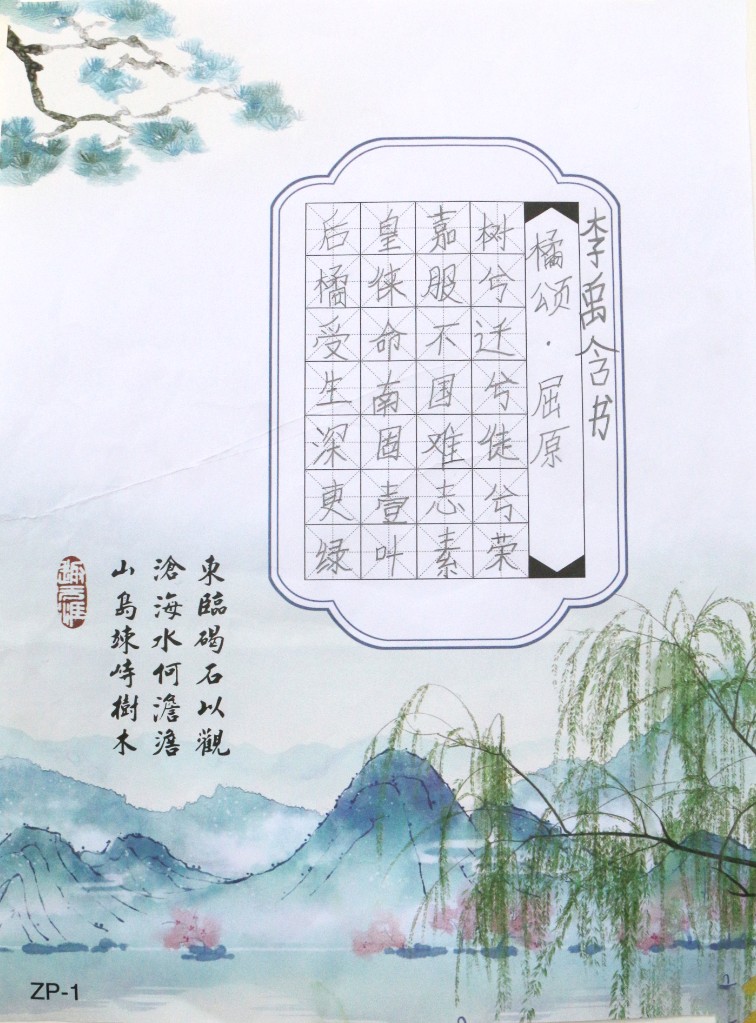 橘颂·屈原
后皇嘉树
橘徕服兮
受命不迁
生南国兮
深固难徙
更壹志兮
绿叶素荣
李禹含书
東臨碣石以觀
滄海水何澹澹
山島竦峙樹木
ZP-1